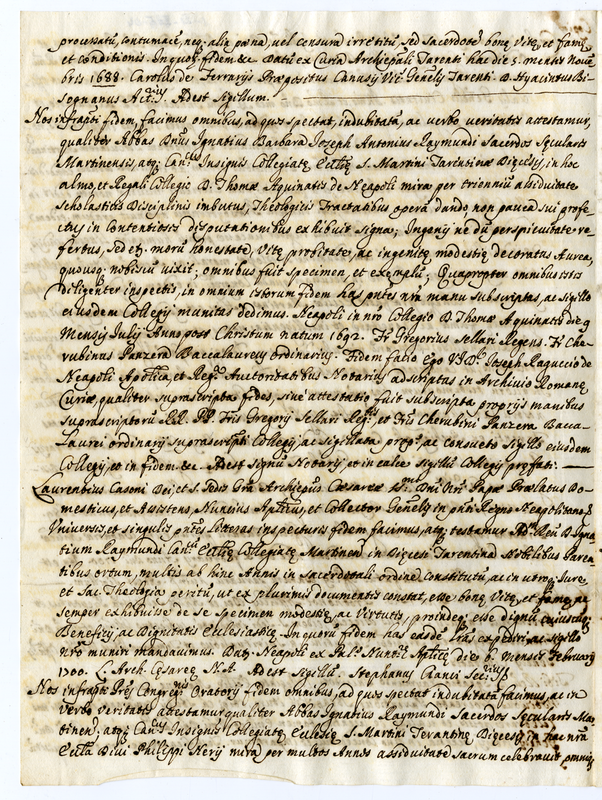 processatū, contumacē, neq; alia pœna, vel censura irretitū, sed sacerdotē bonę Vitę, et famę,
et conditionis. In quoȝ fidem &c. Datū ex Curia Archiepāli Tarenti hac die 5. mensis Novē-
bris 1688. Carolus de Ferrarijs Præpositus Canusij Vic.s Genēlis Tarenti. D. Hyacintus Bi-
sognanus Act.rius. Adest Sigillum.
Nos infrapti fidem facimus omnibus, ad quos spectat, indubitatā, ac verbo veritatis attestamur,
qualiter Abbas Dnus Ignatius Barbara Joseph Antonius Raymundi Sacerdos Sęcularis
Martinensis, atq; Can.cus Insignis Collegiatę Ecclię S. Martini Tarentinę Dięcesis, in hoc
almo, et Regali Collegio D. Thomę Aquinatis de Neapoli mira per trienniū assiduitate
scholasticis Disciplinis imbutus, Theologicis Tractatibus operā dando non pauca sui profe-
ctus in Contentiosis disputationibus exhibuit signa; Ingenij ne dū perspicuitate re-
fertus, sed et morū honestate, Vitę probitate, ac ingenitę modestię decoratus Aurea,
quousq; nobiscū vixit; omnibus fuit specimen, et exemplū; Quapropter omnibus istis
diligenter inspectis, in omnium istorum fidem has pntes nrā manu subscriptas, ac sigillo
eiusdem Collegij munitas dedimus. Neapoli in nrō Collegio D. Thomę Aquinatis die 9
Mensis Julij Anno post Christum natum 1692. Fr. Gregorius Sellari Regens. Fr. Che-
rubinus Panzera Baccalaureus ordinarius. Fidem facio Ego V.J.D. Joseph Ragucci de
Neapoli Aplica, et Reg.a Auctoritatibus Notarius adscriptus in Archivio Romanę
Curię, qualiter suprascripta fides, sive attestatio fuit subscripta proprijs manibus
suprascriptorū RR. PP. Fris Gregorij Sellari Reg.tis, et Fris Cherubini Panzera Bacca-
Laurei ordinarij suprascripti Collegij, ac sigillata prop.o, ac consueto Sigillo eiusdem
Collegij, et in fidem &c. Adest Signū Notarij, et in calce sigillū Collegij prefati.
Laurentius Casoni Dei, et S. Sedis Gra Archiepūs Cæsareę SS.mi Dni Nri Papę Prælatus Do-
mesticus, et Assistens, Nuncius Aplicus, et Collector Genēlis in pnti Regno Neapolitano &
Universis, et singulis pntes literas inspecturis fidem facimus, atq; testamur Adm. Reu. D. Igna
tium Raymundi Can.cū Ecclię Collegiatę Martinen in Dięcesi Tarentina Nobilibus Paren
tibus ortum, multis ab hinc Annis in Sacerdotali ordine constitutū, ac in utroq; Jure,
et Sac. Theologia peritū, ut ex plurimis documentis constat, esse bonę Vitę, et famę, ac
semper exhibuisse de se specimen modestię, ac Virtutis, proindeq; esse dignū cuiuscūq;
Beneficij, ac Dignitatis Ecclesiasticę. In quorū fidem has easdē lras expediri, ac sigillo
nrō muniri mandavimus. Dat. Neapoli ex Pal.o Nunt.re Aplicę die 6. mensis February
1700. L. Arch. Cęsareę N.A. Adest Sigillū. Stephanus Sec.rius
Nos infrapti Prēs Congreg.nis Oratorij fidem omnibus, ad quos spectat indubitatā facimus, ac in
verbo veritatis attestamur qualiter Abbas Ignatius Raymundi Sacerdos Sęcularis Mar
tinen, atq; Can.cus Insignis Collegiatę Ecclesię S. Martini Terantinę Dięcesis in hac nrā
Eccla Divi Philippi Nerij mira per multos Annos assiduitate sacrum celebravit omniq;